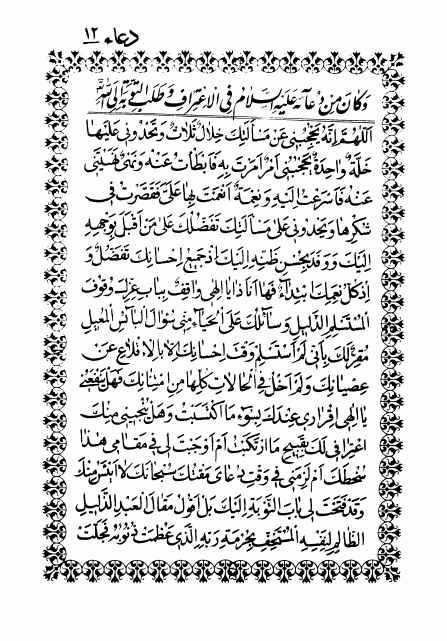 دعاء ١٢
وَكَانَ مِنْ دُعَآئِهِ عَلَيْهِ السَّلَامُ فِى الْاِعْتِرَافِ وَطَلَبِ التَّوْبَةِ اِلَى اللهِ
اَللّٰهُمَّ اِنَّهُ يَحْجُبُنِى عَنْ مَسْاَلَتِكَ خِلَالٌ ثَلَاثٌ وَتَحْدُونِى عَلَيْهَا
خَلَّةٌ وَاحِدَةٌ يَحْجُبُنِى اَمْرٌ اَمَرْتَ بِهِ فَاَبْطَاْتُ عَنْهُ وَنَهْىٌ نَهَيْتَنِى
عَنْهُ فَاَسْرَعْتُ اِلَيْهِ وَنِعْمَةٌ اَنْعَمْتَ بِهَا عَلَىَّ فَقَصَّرْتُ فِى
شُكْرِهَا وَيَحْدُونِى عَلٰى مَسْاَلَتِكَ تَفَضُّلُكَ عَلٰى مَنْ اَقْبَلَ بِوَجْهِهِ
اِلَيْكَ وَوَفَدَ بِحُسْنِ ظَنِّهِ اِلَيْكَ اِذْ جَمِيعُ اِحْسَانِكَ تَفَضُّلٌ وَ
اِذْ كُلُّ نِعَمِكَ ابْتِدَآءٌ فَهَا اَنَا ذَا يَا اِلٰهِى وَاقِفٌ بِبَابِ عِزِّكَ وُقُوفَ
الْمُسْتَسْلِمِ الذَّلِيلِ وَسَآئِلُكَ عَلَى الْحَيَآءِ مِنِّى سُؤَالَ الْبَآئِسِ الْمُعِيلِ
مُقِرٌّ لَكَ بِاَنِّى لَمْ اَسْتَسْلِمْ وَقْتَ اِحْسَانِكَ اِلَّا بِالْاِقْلَاعِ عَنْ
عِصْيَانِكَ وَلَمْ اَخْلُ فِى الْحَالَاتِ كُلِّهَا مِنِ امْتِنَانِكَ فَهَلْ يَنْفَعُنِى
يَا اِلٰهِى اِقْرَارِى عِنْدَكَ بِسُوٓءِ مَا اكْتَسَبْتُ وَهَلْ يُنْجِينِى مِنْكَ
اعْتِرَافِى لَكَ بِقَبِيحِ مَا ارْتَكَبْتُ اَمْ اَوْجَبْتَ لِى فِى مَقَامِى هٰذَا
سُخْطَكَ اَمْ لَزِمَنِى فِى وَقْتِ دُعَاىَ مَقْتُكَ سُبْحَانَكَ لَا اَيْئَسُ مِنْكَ
وَقَدْ فَتَحْتَ لِى بَابَ التَّوْبَةِ اِلَيْكَ بَلْ اَقُولُ مَقَالَ الْعَبْدِ الذَّلِيلِ
الظَّالِمِ لِنَفْسِهِ الْمُسْتَخِفِّ بِحُرْمَةِ رَبِّهِ الَّذِى عَظُمَتْ ذُنُوبُهُ فَجَلَّتْ